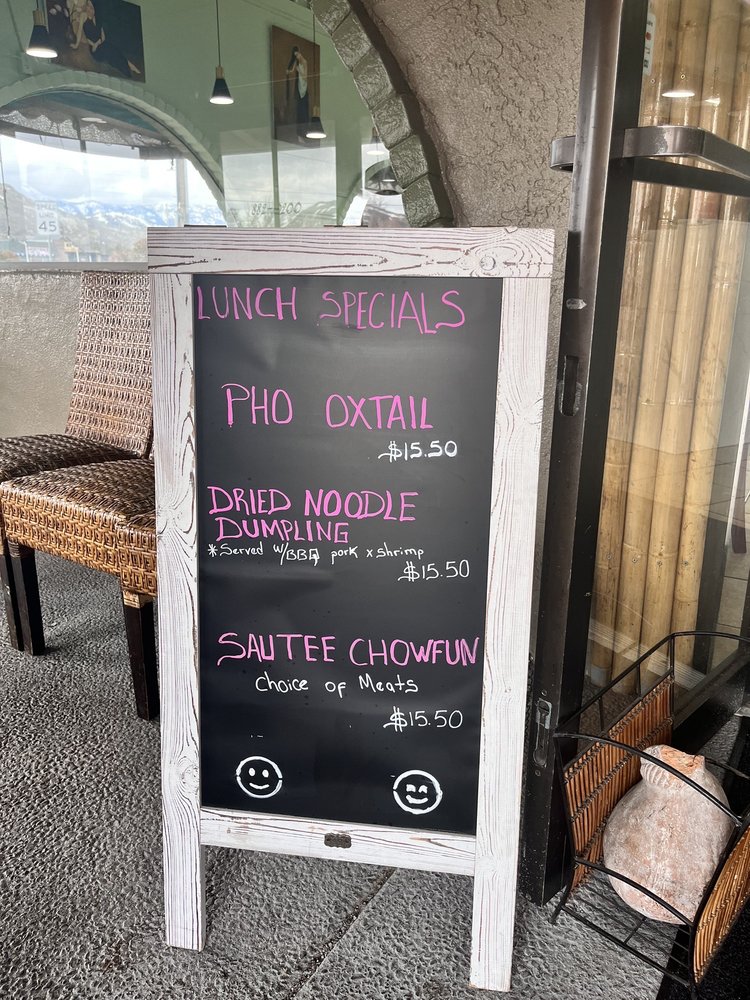 LUNCH SPECIALS
PHO OXTAIL
$15.50
DRIED NOODLE
DUMPLING
*Served w/BBQ pork x shrimp
$15.50
SAUTEE CHOWFUN
choice of Meats
$15.50
45